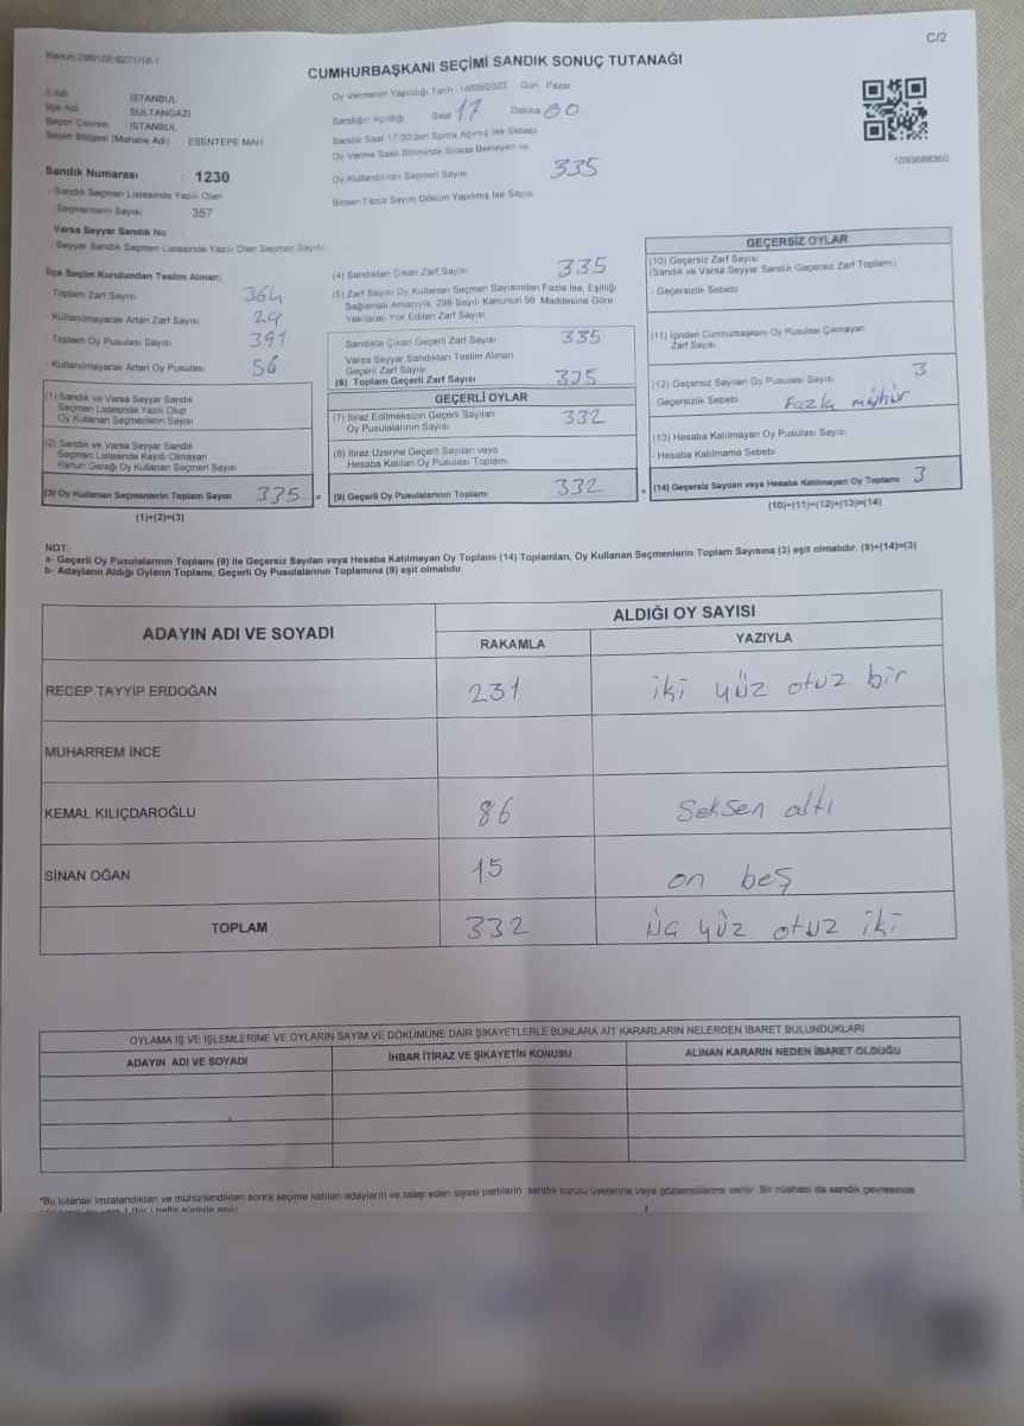 C/2
CUMHURBAŞKANI SEÇİMİ SANDIK SONUÇ TUTANAĞI
İSTANBUL
SULTANGAZİ
İSTANBUL
Seçim Bölgesi (Mahalle Adı) : ESENTEPE MAH
Sandık Numarası : 1230
Sandık Seçmen Listesinde Yazılı Olan
Seçmenlerin Sayısı 357
Varsa Seyyar Sandık No
Seyyar Sandık Seçmen Listesinde Yazılı Olan Seçmen Sayısı
Oy Vermenin Yapıldığı Tarih : 14/05/2023 Gün: Pazar
Sandığın Açıldığı Saat 17 Dakika 00
Sandık Saat 17:00'den Sonra Açılmış İse Sebebi
Oy Verme Saati Bitiminde Sırada Bekleyen ve
Oy Kullandırılan Seçmen Sayısı 335
Birden Fazla Sayım Döküm Yapılmış İse Sayısı
İlçe Seçim Kurulundan Teslim Alınan;
- Toplam Zarf Sayısı 364
- Kullanılmayarak Artan Zarf Sayısı 29
- Toplam Oy Pusulası Sayısı 391
- Kullanılmayarak Artan Oy Pusulası 56
(1) Sandık ve Varsa Seyyar Sandık
Seçmen Listesinde Yazılı Olup
Oy Kullanan Seçmenlerin Sayısı
(2) Sandık ve Varsa Seyyar Sandık
Seçmen Listesinde Kayıtlı Olmayan
Kanun Gereği Oy Kullanan Seçmen Sayısı
(3) Oy Kullanan Seçmenlerin Toplam Sayısı 335 =
(1)+(2)=(3)
(4) Sandıktan Çıkan Zarf Sayısı 335
(5) Zarf Sayısı Oy Kullanan Seçmen Sayısından Fazla İse, Eşitliği
Sağlamak Amacıyla, 298 Sayılı Kanunun 98. Maddesine Göre
Yakılarak Yok Edilen Zarf Sayısı
Sandıkta Çıkan Geçerli Zarf Sayısı 335
Varsa Seyyar Sandıktan Teslim Alınan
Geçerli Zarf Sayısı
(6) Toplam Geçerli Zarf Sayısı 335
GEÇERLİ OYLAR
(7) İtiraz Edilmeksizin Geçerli Sayılan
Oy Pusulalarının Sayısı 332
(8) İtiraz Üzerine Geçerli Sayılan veya
Hesaba Katılan Oy Pusulası Toplamı
(9) Geçerli Oy Pusulalarının Toplamı 332 +
GEÇERSİZ OYLAR
(10) Geçersiz Zarf Sayısı
(Sandık ve Varsa Seyyar Sandık Geçersiz Zarf Toplamı)
- Geçersizlik Sebebi
(11) İçinden Cumhurbaşkanı Oy Pusulası Çıkmayan
Zarf Sayısı
(12) Geçersiz Sayılan Oy Pusulası Sayısı 3
Geçersizlik Sebebi Fazla mühür
(13) Hesaba Katılmayan Oy Pusulası Sayısı
- Hesaba Katılmama Sebebi
(14) Geçersiz Sayılan veya Hesaba Katılmayan Oy Toplamı 3
(10)+(11)+(12)+(13)=(14)
NOT:
a- Geçerli Oy Pusulalarının Toplamı (9) ile Geçersiz Sayılan veya Hesaba Katılmayan Oy Toplamı (14) Toplamları, Oy Kullanan Seçmenlerin Toplam Sayısına (3) eşit olmalıdır. (9)+(14)=(3)
b- Adayların Aldığı Oyların Toplamı, Geçerli Oy Pusulalarının Toplamına (9) eşit olmalıdır.
ADAYIN ADI VE SOYADI
ALDIĞI OY SAYISI
RAKAMLA YAZIYLA
RECEP TAYYİP ERDOĞAN 231 iki yüz otuz bir
MUHARREM İNCE
KEMAL KILIÇDAROĞLU 86 Seksen altı
SİNAN OĞAN 15 on beş
TOPLAM 332 Üç yüz otuz iki
OYLAMA İŞ VE İŞLEMLERİNE VE OYLARIN SAYIM VE DÖKÜMÜNE DAİR ŞİKAYETLERLE BUNLARA AİT KARARLARIN NELERDEN İBARET BULUNDUKLARI
ADAYIN ADI VE SOYADI İHBAR İTİRAZ VE ŞİKAYETİN KONUSU ALINAN KARARIN NEDEN İBARET OLDUĞU
"Bu tutanak imzalandıktan ve mühürlendikten sonra seçime katılan adayların ve talep eden siyasi partilerin sandık kurulu üyelerine veya gözlemcilerine verilir. Bir nüshası da sandık çevresinde